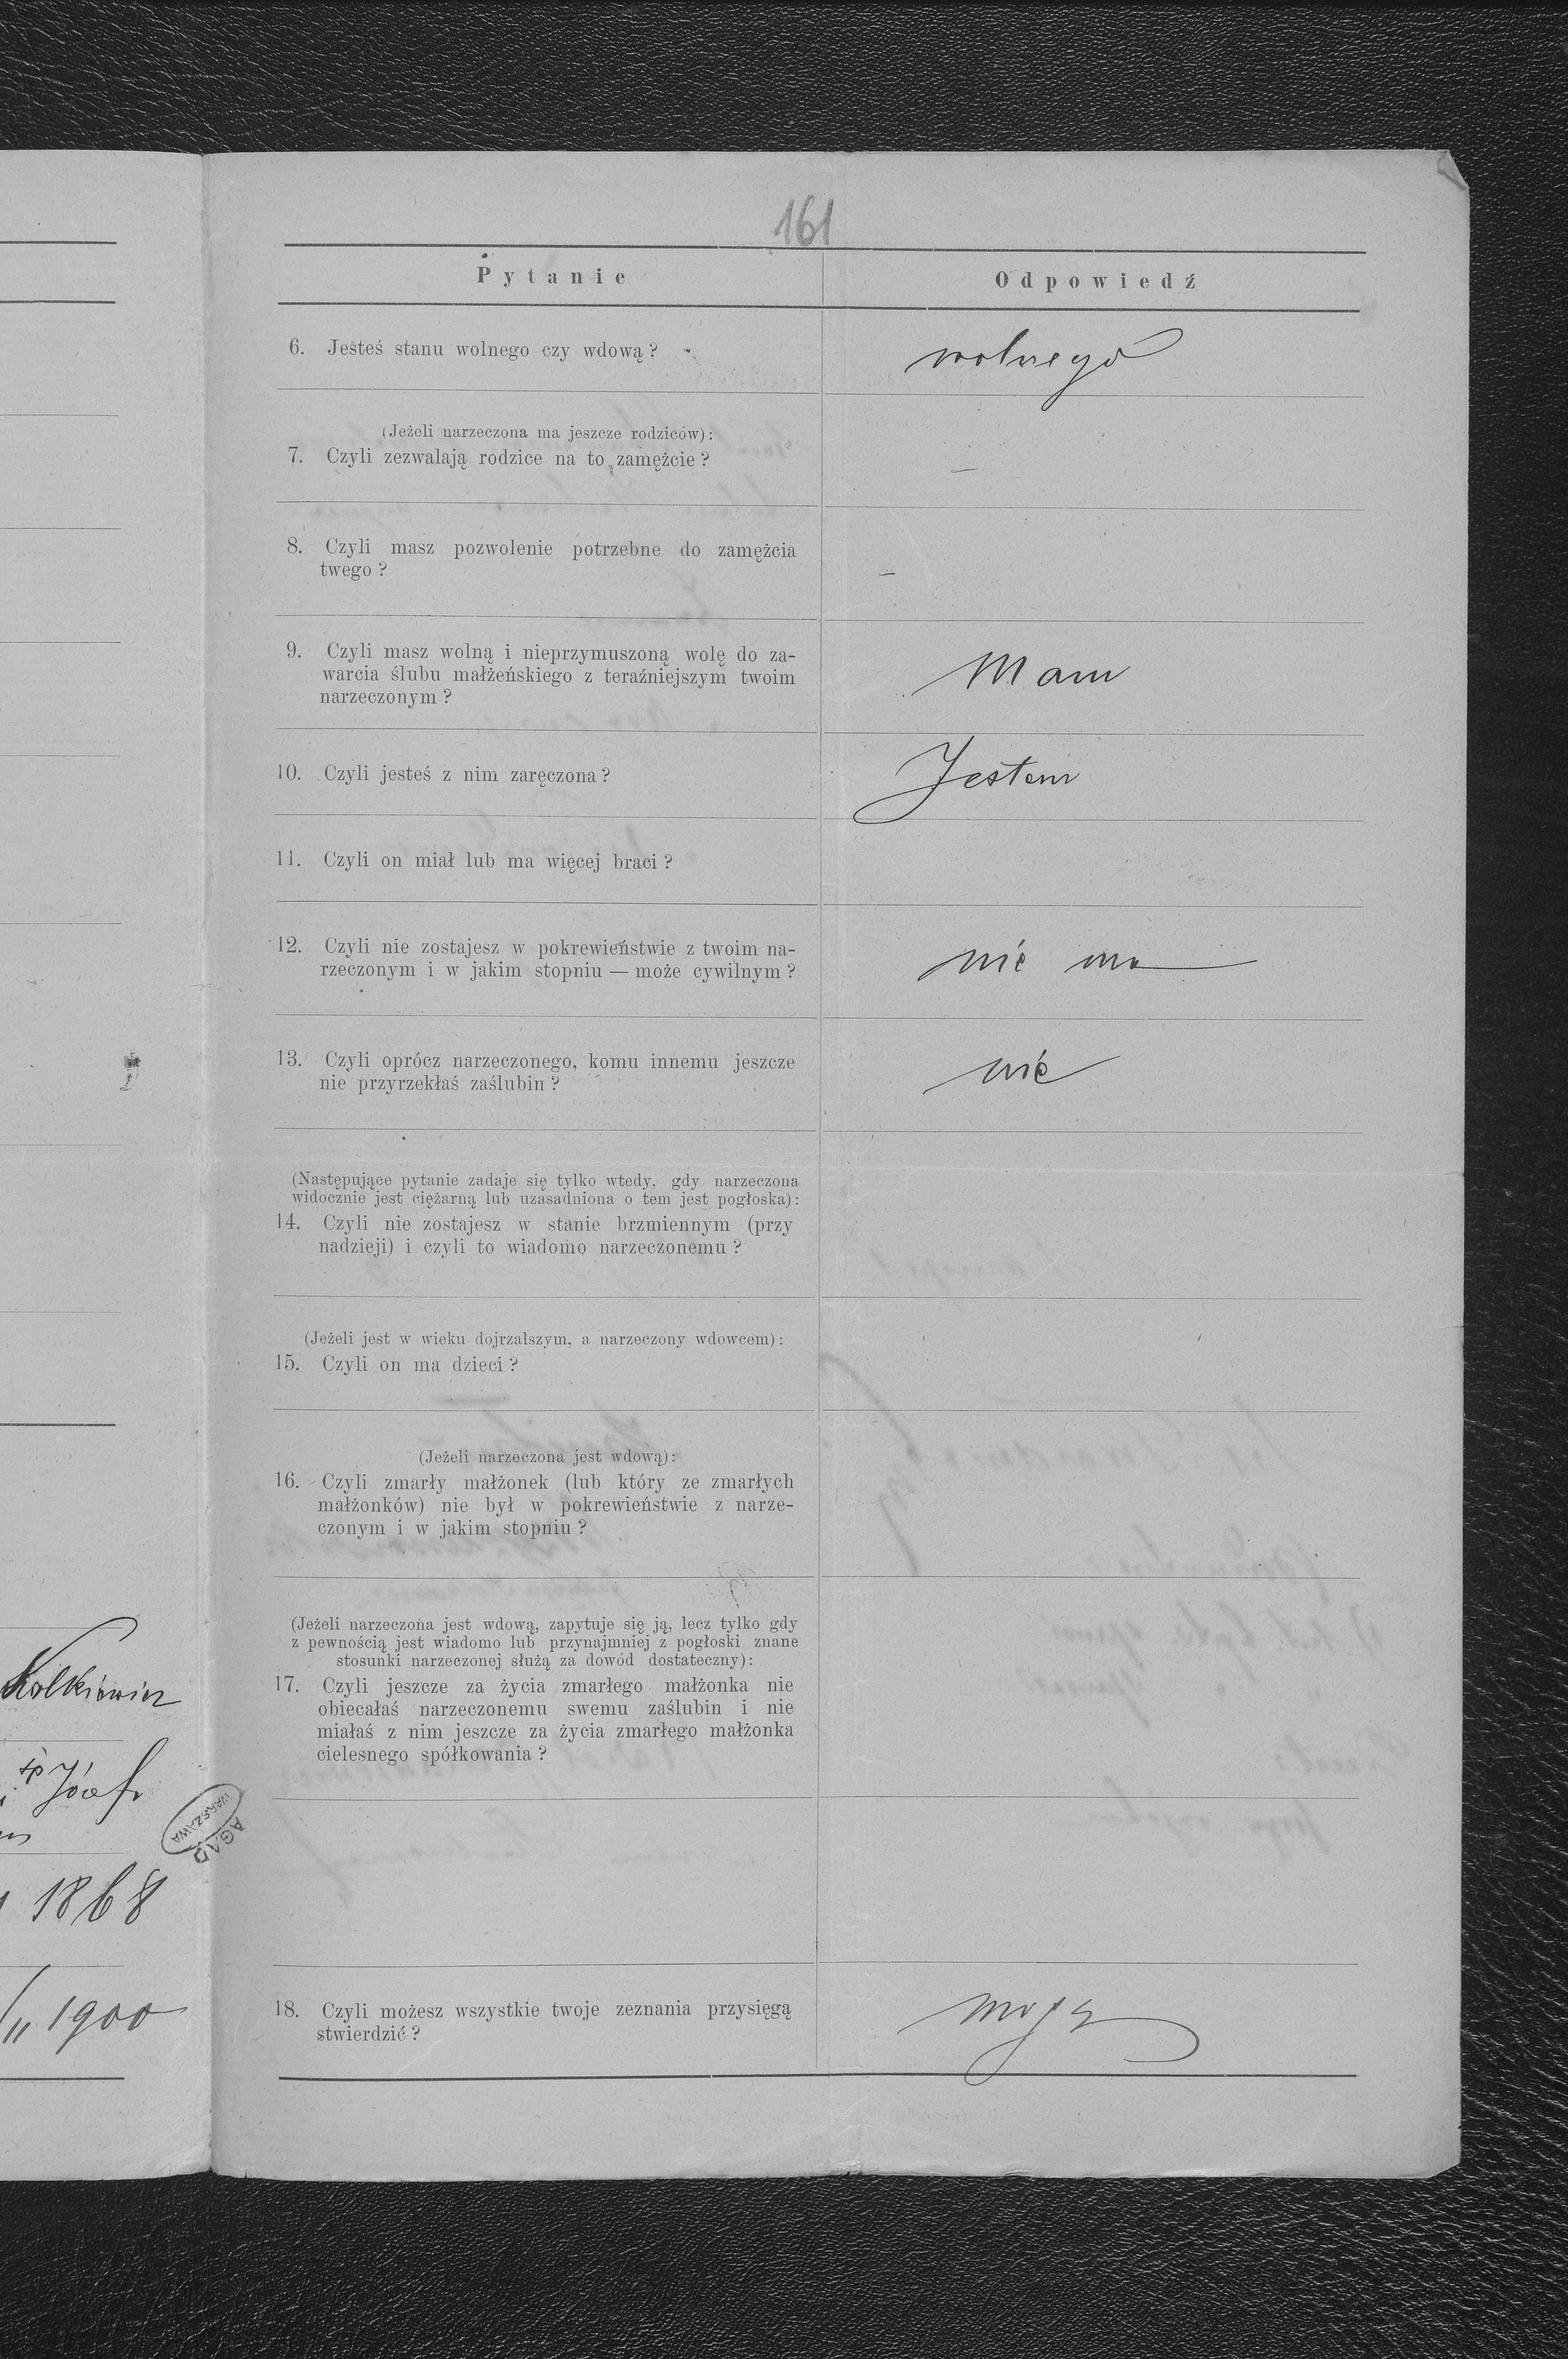 161
Pytanie
Odpowiedź
6. Jesteś stanu wolnego czy wdową?
wolnego
(Jeżeli narzeczona ma jeszcze rodziców):
7. Czyli zezwalają rodzice na to zamężcie?
—
8. Czyli masz pozwolenie potrzebne do zamężcia
twego?
–
9. Czyli masz wolną i nieprzymuszoną wolę do za-
warcia ślubu małżeńskiego z teraźniejszym twoim
narzeczonym?
Mam
10. Czyli jesteś z nim zaręczona?
Jestem
11. Czyli on miał lub ma więcej braci?
12. Czyli nie zostajesz w pokrewieństwie z twoim na-
rzeczonym i w jakim stopniu — może cywilnym?
nié ma
13. Czyli oprócz narzeczonego, komu innemu jeszcze
nie przyrzekłaś zaślubin?
nié
(Następujące pytanie zadaje się tylko wtedy, gdy narzeczona
widocznie jest ciężarną lub uzasadniona o tem jest pogłoska):
14. Czyli nie zostajesz w stanie brzmiennym (przy
nadzieji) i czyli to wiadomo narzeczonemu?
(Jeżeli jest w wieku dojrzalszym, a narzeczony wdowcem):
15. Czyli on ma dzieci?
(Jeżeli narzeczona jest wdową):
16. Czyli zmarły małżonek (lub który ze zmarłych
małżonków) nie był w pokrewieństwie z narze-
czonym i w jakim stopniu?
(Jeżeli narzeczona jest wdową, zapytuje się ją, lecz tylko gdy
z pewnością jest wiadomo lub przynajmniej z pogłoski znane
stosunki narzeczonej służą za dowód dostateczny):
17. Czyli jeszcze za życia zmarłego małżonka nie
obiecałaś narzeczonemu swemu zaślubin i nie
miałaś z nim jeszcze za życia zmarłego małżonka
cielesnego spółkowania?
18. Czyli możesz wszystkie twoje zeznania przysięgą
stwierdzić?
mogę
Kolkiewicz
Józef
1868
1900
AGAD
WARSZAWA